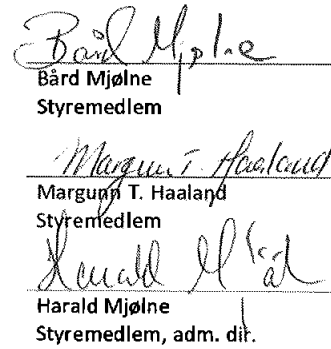 Bård Mjølne
Bård Mjølne
Styremedlem
Margunn T. Haaland
Margunn T. Haaland
Styremedlem
Harald
Harald Mjølne
Styremedlem, adm. dir.